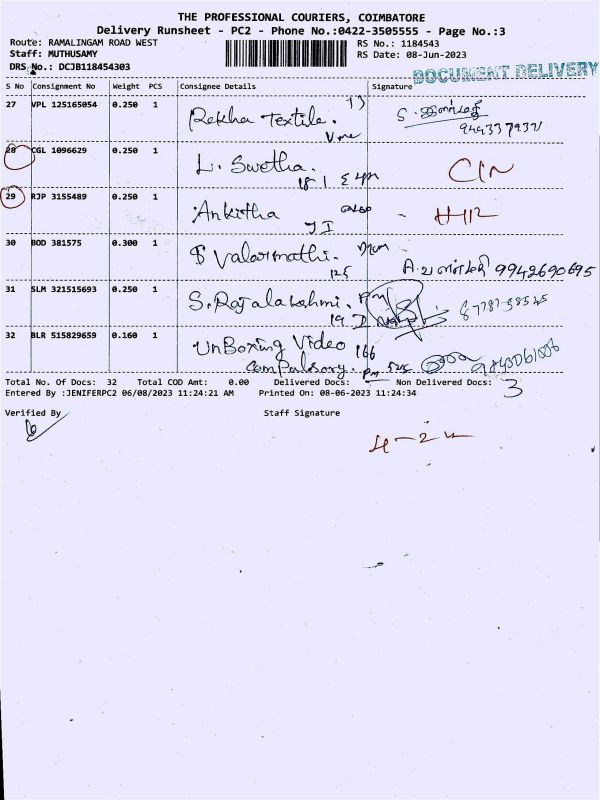 THE PROFESSIONAL COURIERS, COIMBATORE
Delivery Runsheet - PC2 - Phone No.:0422-3505555 - Page No.:3
Route: RAMALINGAM ROAD WEST
RS No.: 1184543
Staff: MUTHUSAMY
RS Date: 08-Jun-2023
DRS No.: DCJB118454303
DOCUMENT DELIVERY
S No Consignment No Weight PCS Consignee Details Signature
27 VPL 125165054 0.250 1 Rekha Textile.
28 CGL 1096629 0.250 1 L. Swetha.
29 RJP 3155489 0.250 1 Ankitha
30 BOD 381575 0.300 1 Valarmathi. 9942690695
125
31 SLM 321515693 0.250 1 S. Rajalakshmi.
32 BLR 515829659 0.160 1 UnBoxing Video 166
Compulsory.
Total No. Of Docs: 32 Total COD Amt: 0.00 Delivered Docs: Non Delivered Docs: 3
Entered By :JENIFERPC2 06/08/2023 11:24:21 AM Printed On: 08-06-2023 11:24:34
Verified By Staff Signature